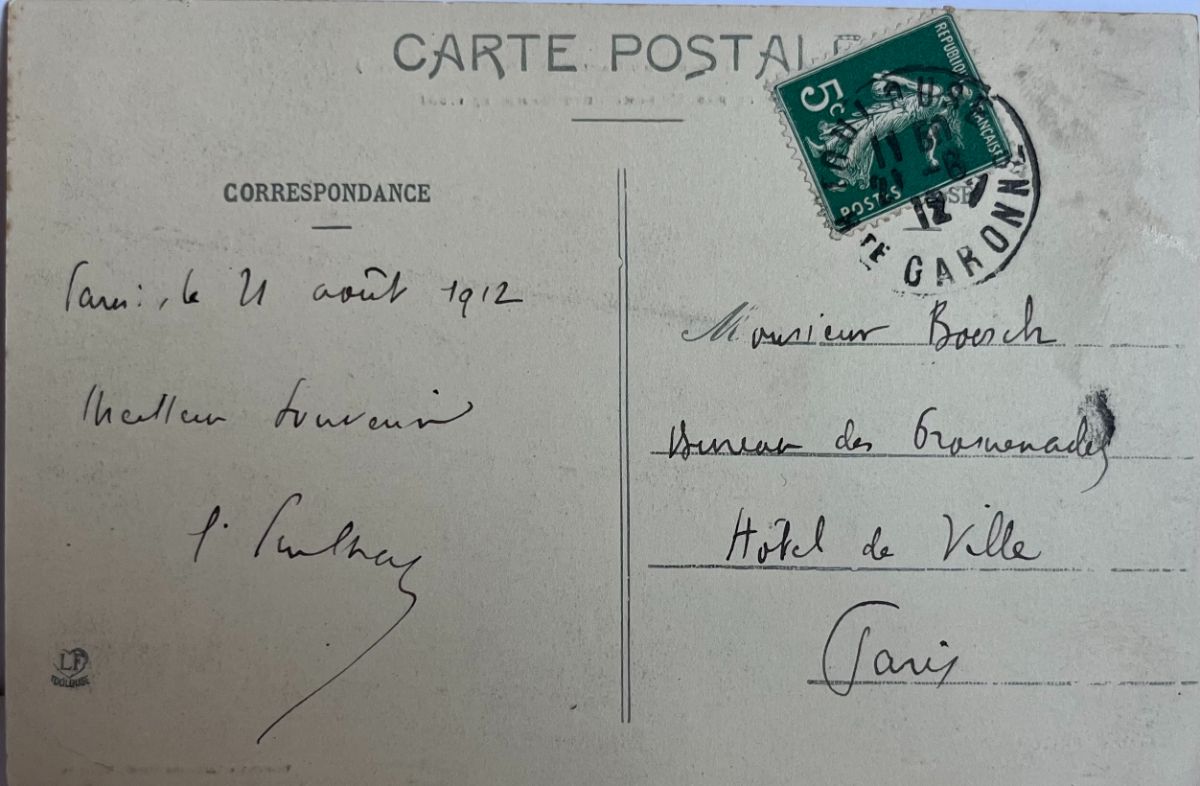 CARTE POSTALE
RÉPUBLIQUE FRANÇAISE
5c
POSTES
TOULOUSE
21 -8
12
Hte GARONNE
CORRESPONDANCE
le 21 août 1912
Meilleur souvenir
Monsieur Boesch
Bureau des Promenades
Hôtel de Ville
Paris
LF
TOULOUSE